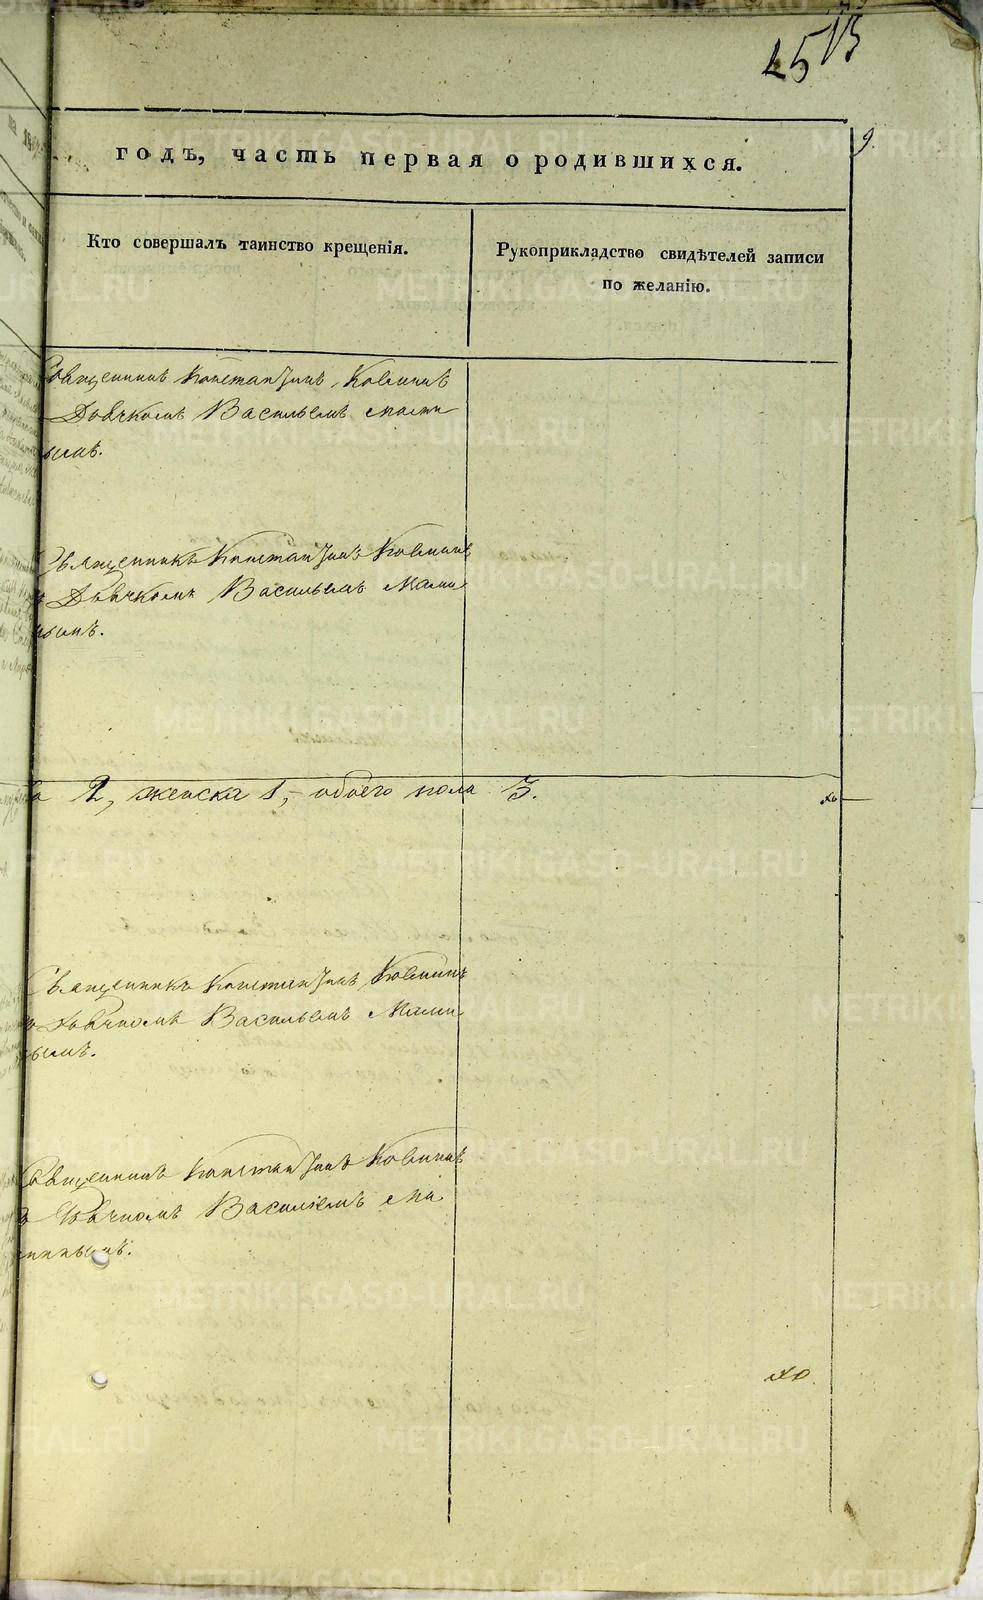 25
13
9.
годъ, часть первая о родившихся.
Кто совершалъ таинство крещенія.
Рукоприкладство свидѣтелей записи
по желанію.
Священникъ Константинъ
Дьячкомъ Васильемъ Мами
ымъ.
Священникъ Константинъ
Дьячкомъ Васильемъ Мами
нымъ.
2, женска 1, обоего пола 3.
Священникъ Константинъ
Дьячкомъ Васильемъ Мами
нымъ.
Священникъ Константинъ
Дьячкомъ Васильемъ Ма
минымъ.
METRIKI.GASO-URAL.RU